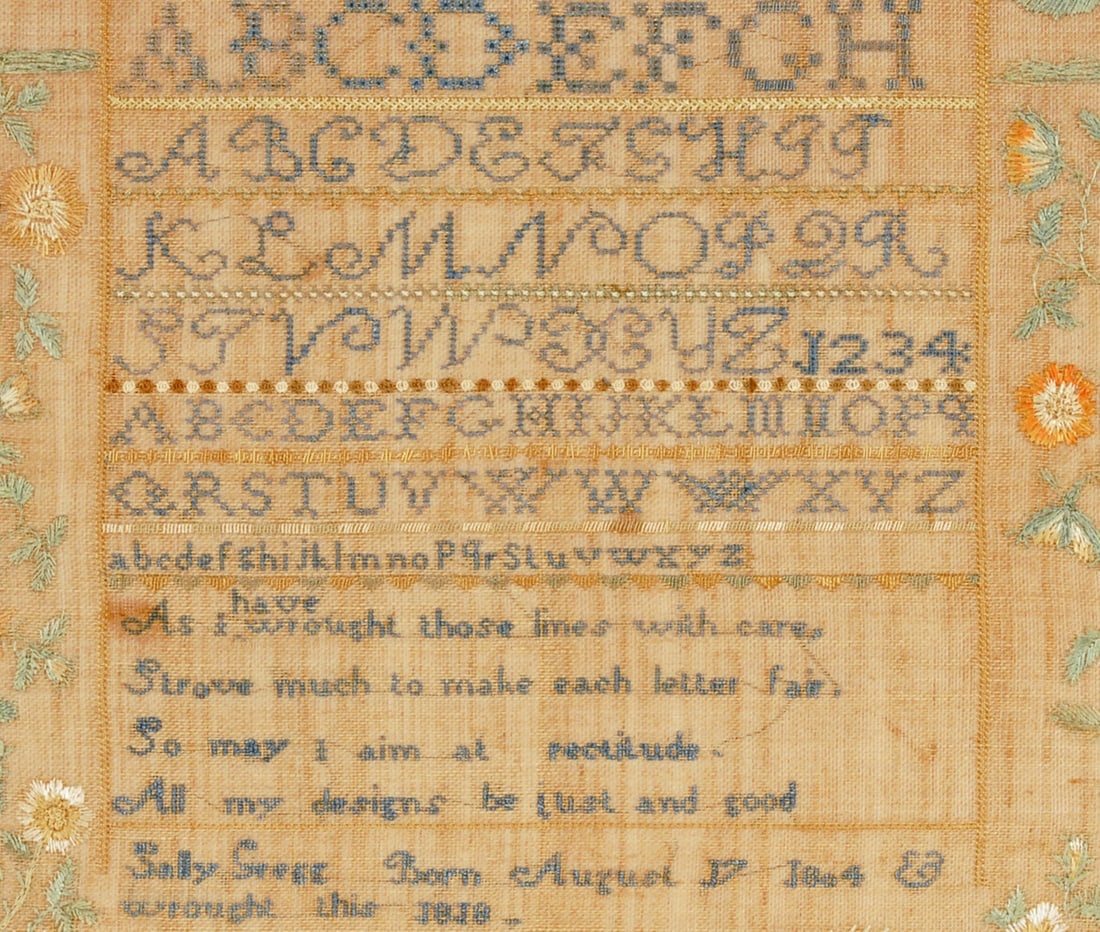 ABCDEFGH
ABCDEFGHIJ
KLMNOPQR
STVWXYZ1234
ABCDEFGHIJKLMNOPQ
QRSTUVWWWXYZ
abcdefghijklmnoPqrStuvwxyz
have
As I wrought those lines with care,
Strove much to make each letter fair.
So may I aim at rectitude.
All my designs be just and good
Sally Gregg Born August 17 1804 &
wrought this 1818